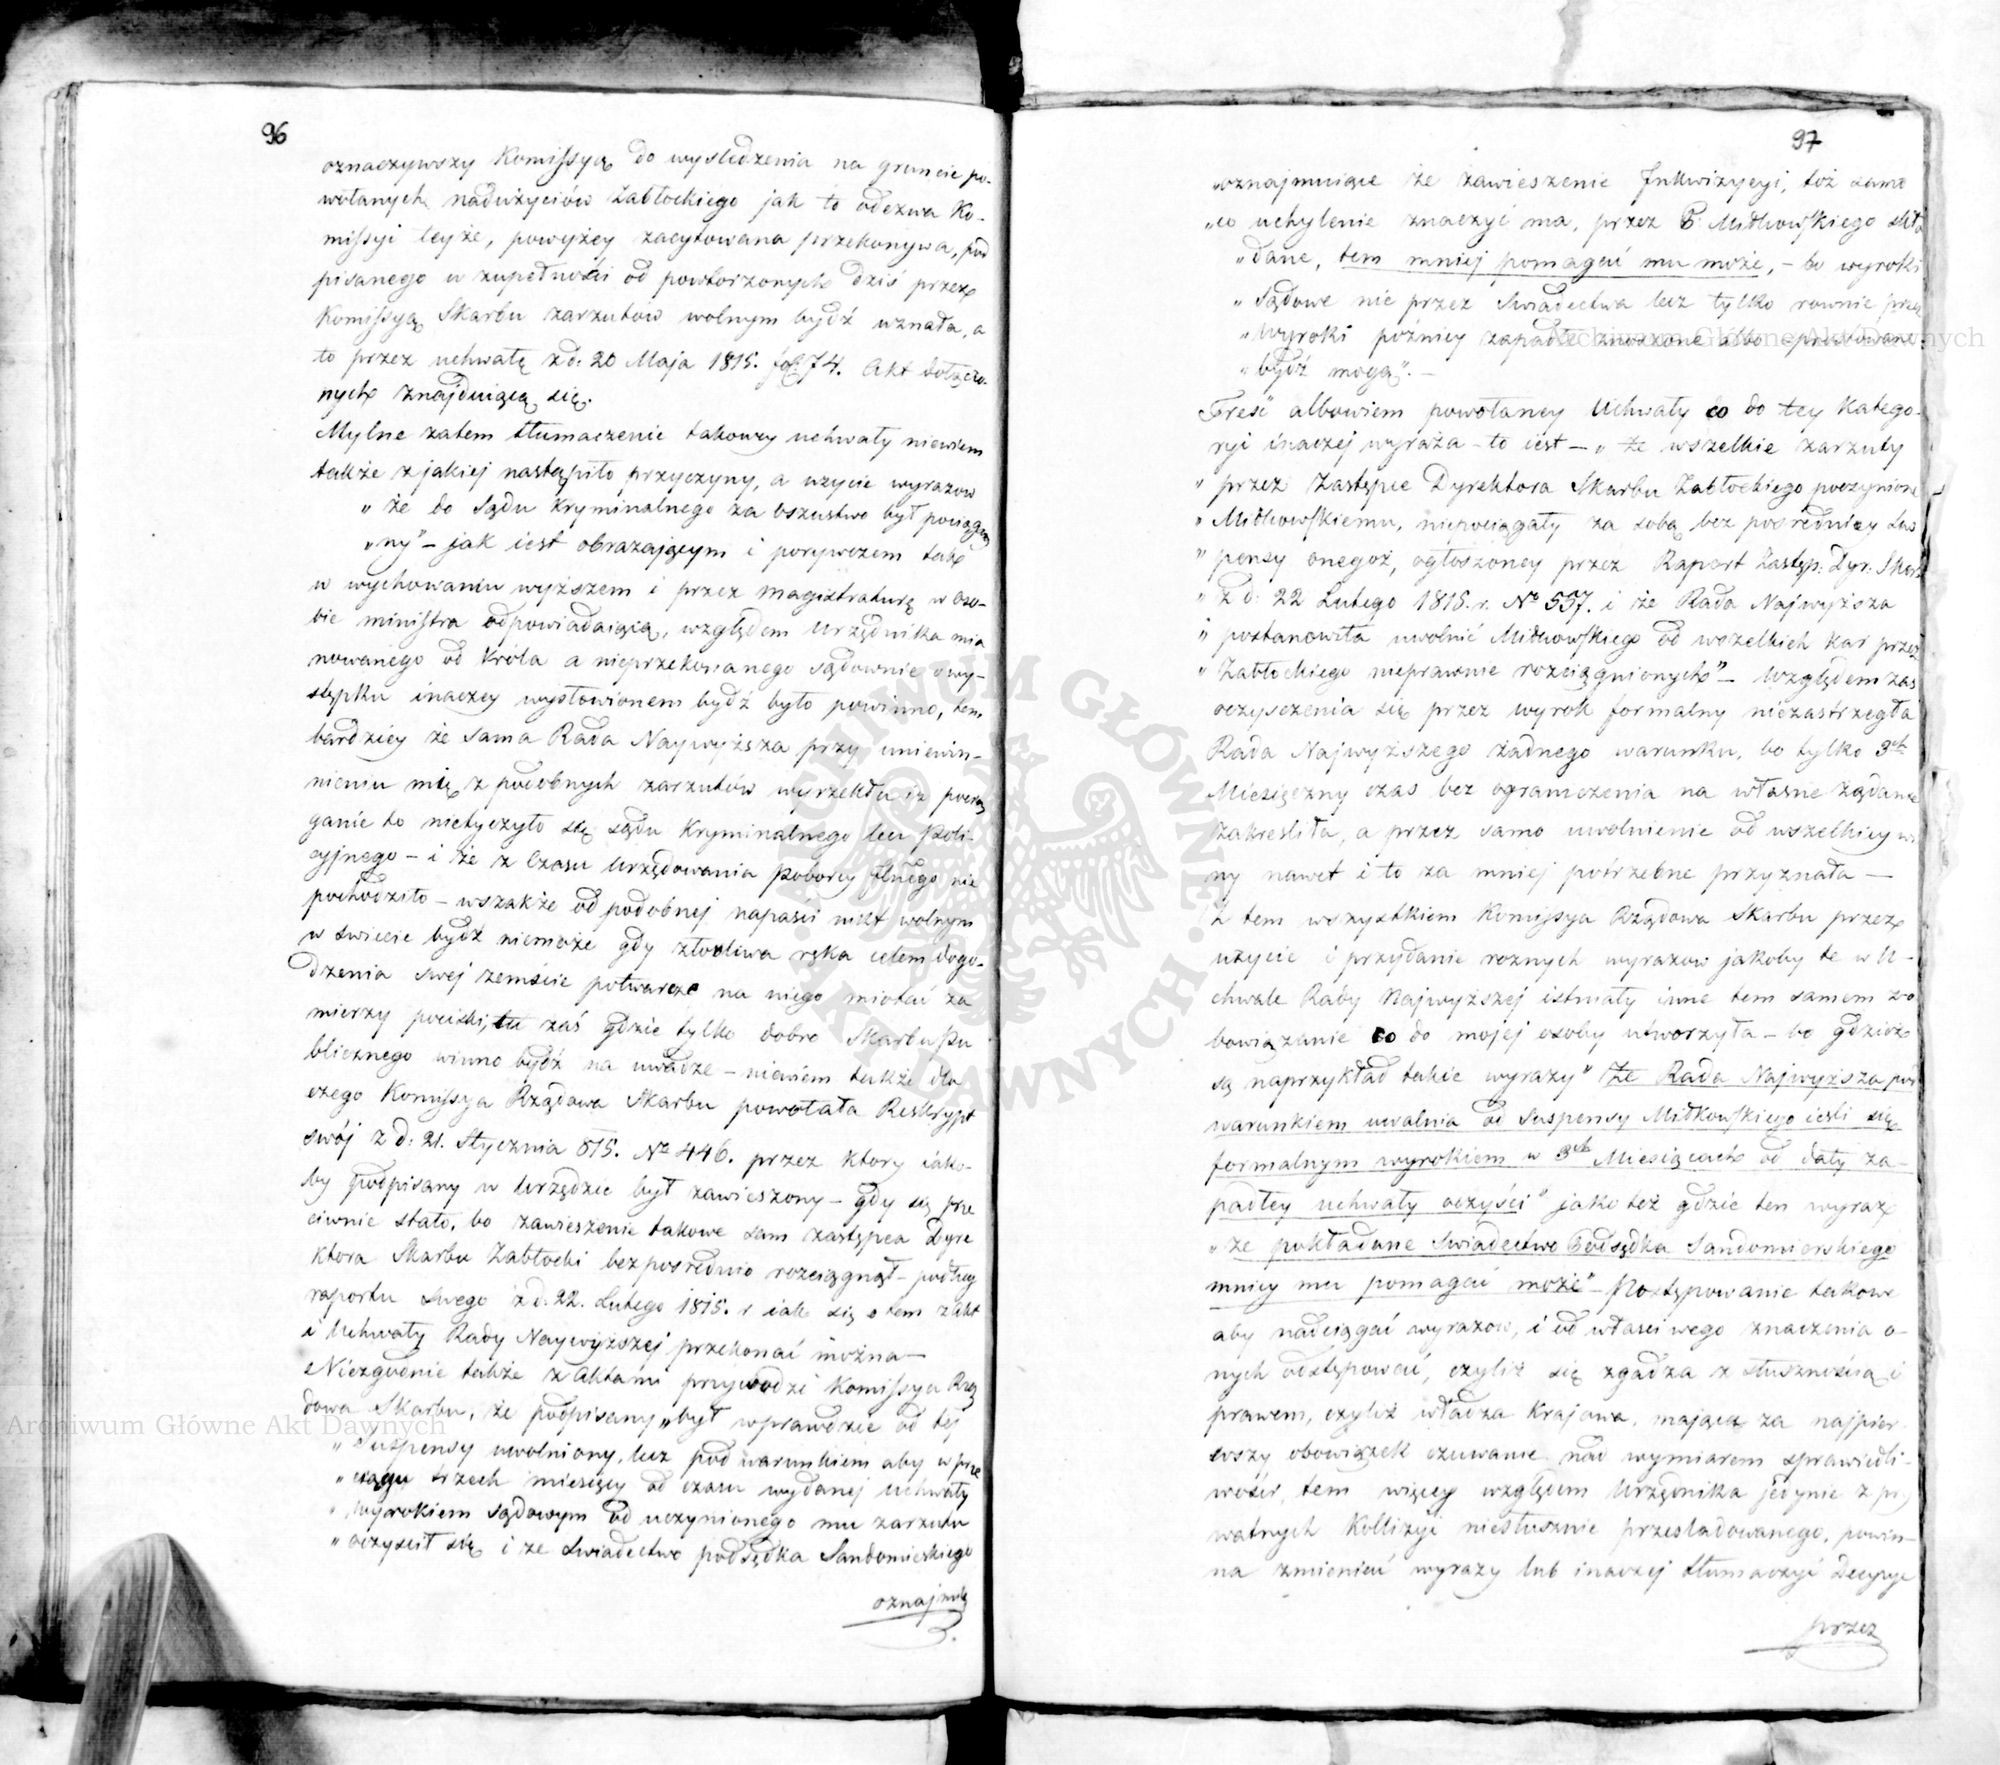 96
oznaczywszy Komissyą do wysledzenia na gruncie po-
wołanych nadużyciów Zabłockiego jak to odezwa Ko-
missyi teyże, powyżey zacytowana przekonywa, pod
pisanego w zupełności od powtorzonych dziś przez
Komissyą Skarbu zarzutow wolnym bydź uznała, a
to przez uchwałę z d: 20 Maja 1815. fol: 74. Akt dołączo-
nych znajduiącą się.
Mylne zatem tłumaczenie takowey uchwały niewiem
także z jakiej nastąpiło przyczyny, a uzycie wyrazow
„ że do Sądu Kryminalnego za oszustwo był pociągnio
„ny" – jak iest obrazającym i porywczem tak
w wychowaniu wyższem i przez magistraturę w oso-
bie ministra odpowiadaiącą, względem Urzędnika mia
nowanego od Króla a nieprzekonanego sądownie o wy-
stępku inaczey wysłowionem bydź było powinno, tem
bardziey że sama Rada Naywyższa przy uniewin-
nieniu mię z podobnych zarzutów wyrzekła iż pocią
ganie to nietyczyło się sądu Kryminalnego lecz Poli-
cyjnego – i że z Czasu Urzędowania Poborcy nie
pochodziło – wszakże od podobnej napaści nikt wolnym
w swiecie bydź niemoże gdy złośliwa ręka celem dogo-
dzenia swej zemście potwarcze na niego miotać za
mierzy pociski, tu zaś gdzie tylko dobro Skarbu Pu
blicznego winno bydź na uwadze – niewiem także dla
czego Komissya Rządowa Skarbu powołała Reskrypt
swój z d: 21. Stycznia 815. No 446. przez ktory iako-
by podpisany w Urzędzie był zawieszony – gdy się prze
ciwnie stało, bo zawieszenie takowe sam zastępca Dyre
ktora Skarbu Zabłocki bezpośrednio rozciągnął – podług
raportu swego z d. 22. Lutego 1815. r iak się o tem z akt
i Uchwały Rady Naywyższej przekonać można –
Niezgodnie także z Aktami przywodzi Komissya Rzą
dowa Skarbu, że podpisany „był wprawdzie od tej
„ Suspensy uwolniony, lecz pod warunkiem aby w prze
„ ciągu trzech miesięcy od czasu wydanej uchwały
„ wyrokiem sądowym od uczynionego mu zarzutu
„ oczyscił się i ze swiadectwo podsędka Sandomirskiego
oznajmuią
97
„oznajmuiące że zawieszenie Inkwizycyi, toż samo
„co uchylenie znaczyć ma, przez P. Miłkowskiego skła
„dane, tem mniej pomagać mu może, – bo wyroki
„ Sądowe nie przez swiadectwa lecz tylko rownie przez
„ Wyroki późniey zapadłe znoszone albo prostowane
„ bydź mogą". –
Treść albowiem powołaney Uchwały co do tey Katego-
ryi inaczej wyraża – to iest – „ że wszelkie zarzuty
„ przez Zastępce Dyrektora Skarbu Zabłockiego poczynione
„ Miłkowskiemu, niepociągały za sobą bez pośredniey Sus
„ pensy onegoż, ogłoszoney przez Raport Zastęp: Dyr: Skarb
„ z d: 22 Lutego 1815. r. No 557. i że Rada Najwyższa
„ postanowiła uwolnić Miłkowskiego od wszelkich kar przez
„ Zabłockiego nieprawnie rozciągnionych" – Względem zas
oczysczenia się przez wyrok formalny niezastrzegła
Rada Najwyższego żadnego warunku, bo tylko 3ch
Miesięczny czas bez ograniczenia na własne żądanie
zakresliła, a przez samo uwolnienie od wszelkiey wi
ny nawet i to za mniej potrzebne przyznała –
Z tem wszystkiem Komissya Rządowa Skarbu przez
użycie i przydanie roznych wyrazow jakoby te w U-
chwale Rady Najwyższej istniały inne tem samem zo
bowiązanie co do mojej osoby utworzyła – bo gdzież
są naprzykład takie wyrazy „ Że Rada Najwyższa pod
warunkiem uwalnia od Suspensy Miłkowskiego iesli się
formalnym wyrokiem w 3ch Miesiącach od daty za-
padłey uchwały oczyści" jako też gdzie ten wyraz
„ że pokładane swiadectwo Podsędka Sandomierskiego
mniey mu pomagać może" – Postępowanie takowe
aby nadciągać wyrazow, i od własciwego znaczenia o-
nych odstępować, czyliż się zgadza z słusznością i
prawem, czyliż władza Krajowa, mająca za najpier
wszy obowiązek czuwanie nad wymiarem sprawiedli-
wości, tem więcey względem Urzędnika jedynie z pry
watnych Kollizyi niesłusznie przesladowanego, powin-
na zmieniać wyrazy lub inaczej tłumaczyć Decyzye
przez
Archiwum Główne Akt Dawnych
Archiwum Główne Akt Dawnych
ARCHIWUM GŁÓWNE AKT DAWNYCH